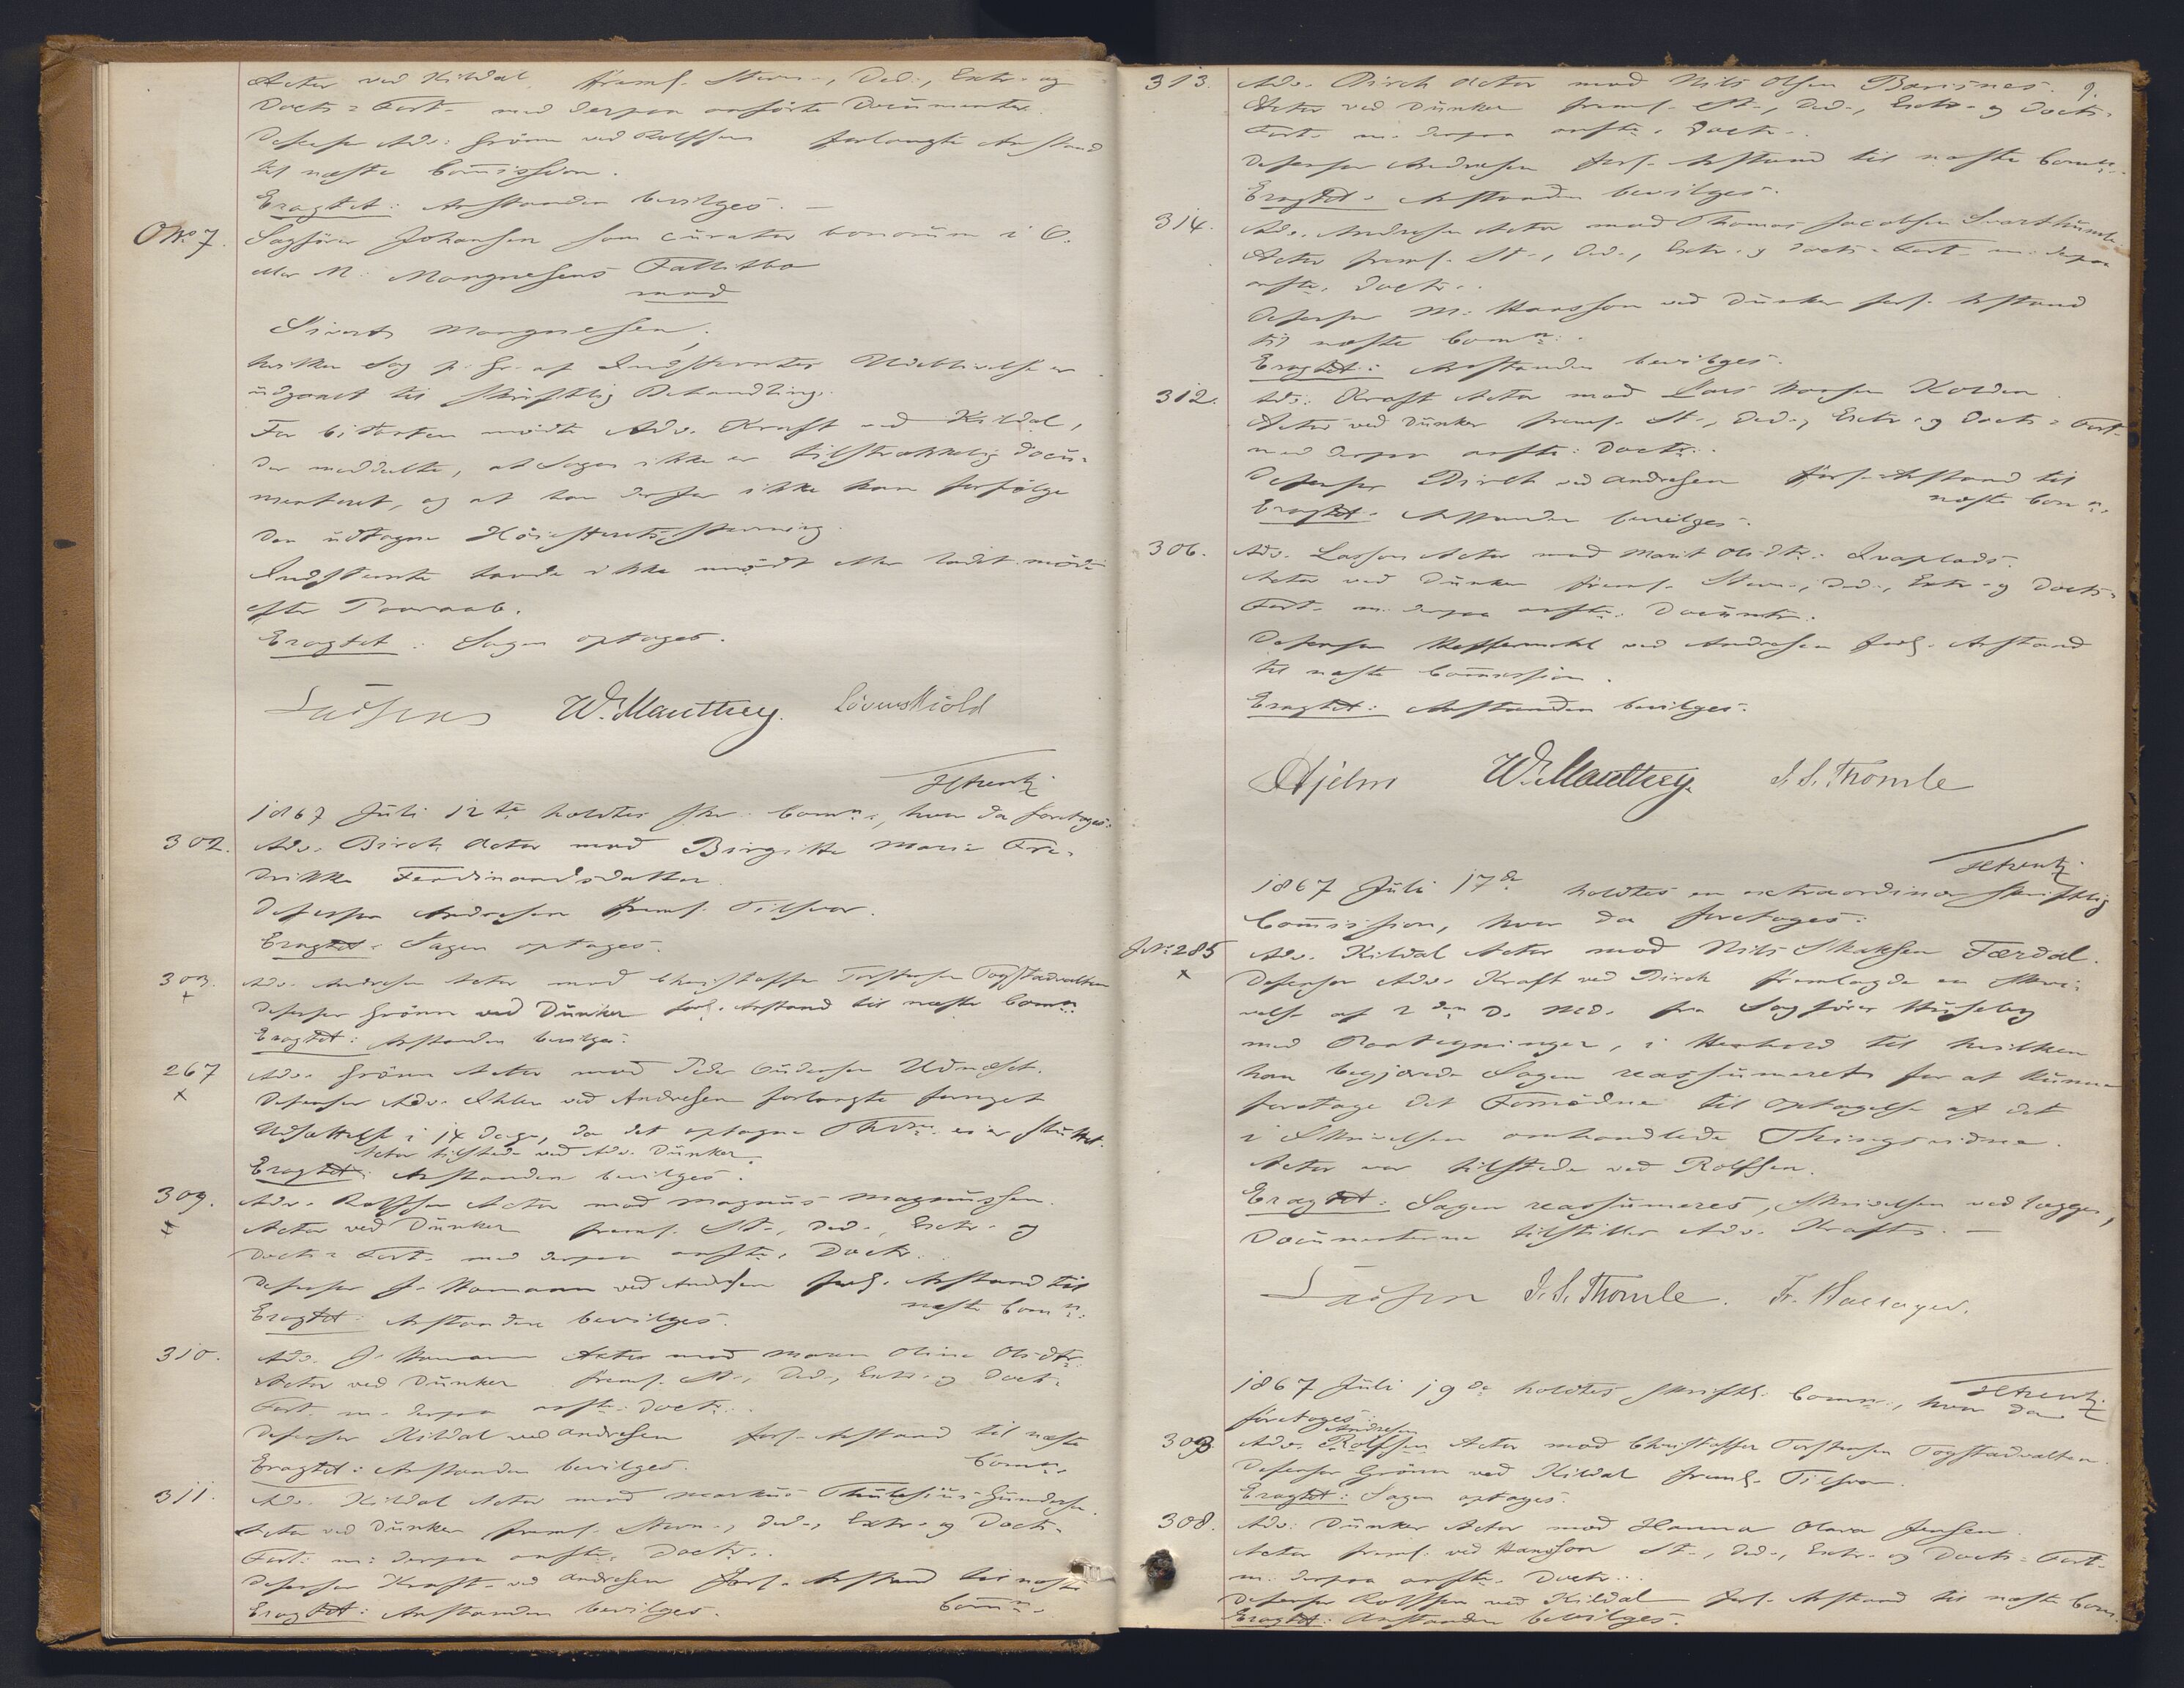 Actor ved Kildal freml. Stevn-, Ded-, Extr- og
Docts = Fort- med derpaa anførte Documenter.
Defensor Adv. Grönn ved Rolfsen forlangte Anstand
til næste Commission.
Eragtet: Anstanden bevilges. —
O No 7. Sagfører Johansen som curator bonorum i O.
M. Mangnesens Fallitbo
mod
Sivert Mangnesen,
hvilken Sag p. Gr. af Indstevntes Udeblivelse er
udgaaet til skriftlig Behandling.
For Citanten mødte Adv. Kraft ved Kildal,
der meddelte, at Sagen ikke er tilstrækkelig docu-
menteret, og at han derfor ikke kan forfølge
den udtagne Høiesteretsstevning.
Indstevnte havde ikke mødt eller ladet møde
efter Paaraab.
Eragtet: Sagen optages.
Lasson W. Manthey. Løvenskiold
1867 Juli 12te holdtes skr. Comn., hvor da foretoges:
302. Adv. Birch Actor mod Birgitte Marie Fre-
drikke Ferdinandsdatter.
Defensor Andresen freml. Tilsvar.
Eragtet: Sagen optages.
303. Adv. Andresen Actor mod Christoffer Torstensen Togstadvalten
Defensor Grönn ved Dunker forl. Anstand til næste Comn.
Eragtet: Anstanden bevilges.
267 Adv. Grönn Actor mod Peder Gudersen Udnæset.
Defensor Adv. Ihlen ved Andresen forlangte fornyet
Udsættelse i 14 Dage, da det optagne Thv. ei er sluttet.
Actor tilstede ved Adv. Dunker.
Eragtet: Anstanden bevilges.
309. Adv. Rolfsen Actor mod Magnus Magnussen.
Actor ved Dunker freml. St-, Ded-, Extr- og
Docts = Fort- med derpaa anfte. Doctr.
Defensor J. Homann ved Andresen forl. Anstand til
næste Comn.
Eragtet: Anstanden bevilges.
310. Adv. J. Homann Actor mod Maren Oline Olsdtr.
Actor ved Dunker freml. St-, Ded-, Extr- og Docts-
Fort. m. derpaa anfte. Doctr.
Defensor Kildal ved Andresen forl. Anstand til næste
Comn.
Eragtet: Anstanden bevilges.
311. Adv. Kildal Actor mod Markus Gundersen.
Actor ved Dunker freml. Stevn-, Ded-, Extr- og Docts-
Fort. m. derpaa anfte. Doctr.
Defensor Kraft ved Andresen forl. Anstand til næste
Comn.
Eragtet: Anstanden bevilges.
9.
313. Adv. Birch Actor mod Nils Olsen
Actor ved Dunker freml. St-, Ded-, Extr- og Docts-
Fort- m. derpaa anfte. Doctr.
Defensor Andresen forl. Anstand til næste Comn.
Eragtet: Anstanden bevilges.
314. Adv. Andresen Actor mod Thomas Jacobsen
Actor freml. St-, Ded-, Extr- og Docts- Fort- m. derpaa
anfte. Doctr.
Defensor M. Hansson ved Dunker forl. Anstand
til næste Comn.
Eragtet: Anstanden bevilges.
312. Adv. Kraft Actor mod Lars Kolden.
Actor ved Dunker freml. St-, Ded-, Extr- og Docts = Fort-
med derpaa anfte. Doctr.
Defensor Birch ved Andresen forl. Anstand til
næste Comn.
Eragtet: Anstanden bevilges.
306. Adv. Lasson Actor mod Marit Olsdtr.
Actor ved Dunker freml. Stevn-, Ded-, Extr- og Docts-
Fort- m. derpaa anfte. Documtr.
Defensor Heffermehl ved Andresen forl. Anstand
til næste Commission.
Eragtet: Anstanden bevilges.
Hjelm W. Manthey. I. S. Thomle
1867 Juli 17de holdtes en extraordinær skriftlig
Commission, hvor da foretoges:
J No 285 Adv. Kildal Actor mod Nils Færdal.
Defensor Adv. Kraft ved Birch fremlagde en Skri-
velse af 2den d. Md. fra Sagfører Huseby
med Paategninger, i Henhold til hvilken
han begjærede Sagen reassumeret for at kunne
foretage det Fornødne til Optagelse af det
i Skrivelsen omhandlede Thingsvidne.
Actor var tilstede ved Rolfsen.
Eragtet: Sagen reassumeres, Skrivelsen vedlægges,
Documenterne tilstilles Adv. Kraft. —
Lasson I. S. Thomle. Fr. Hallager.
1867 Juli 19de holdtes skriftl. Comn., hvor da
foretoges:
Andresen
303. Adv. Rolfsen Actor mod Christoffer Torstensen Togstadvalten.
Defensor Grönn ved Kildal freml. Tilsvar.
Eragtet: Sagen optages.
308. Adv. Dunker Actor mod Hanna Olava Jensen.
Actor freml. ved Hansson St-, Ded-, Extr- og Docts = Fort-
m. derpaa anfte. Doctr.
Defensor Rolfsen ved Kildal forl. Anstand til næste Com.
Eragtet: Anstanden bevilges.